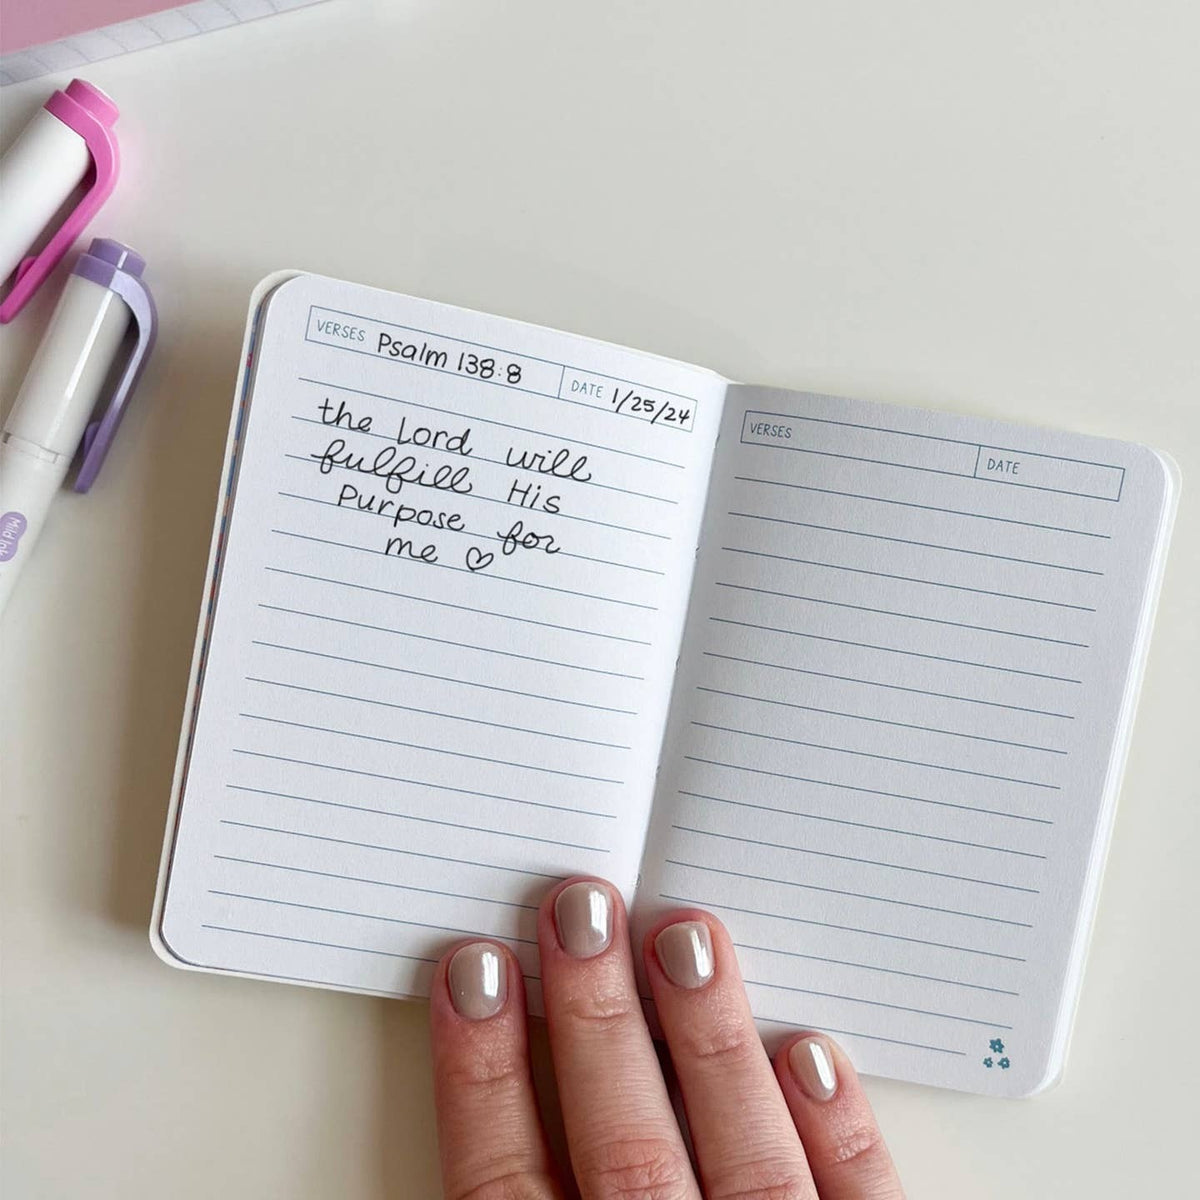 VERSES Psalm 138:8 DATE 1/25/24
the Lord will
fulfill His
Purpose for
me ♡
VERSES DATE
Mild Ink